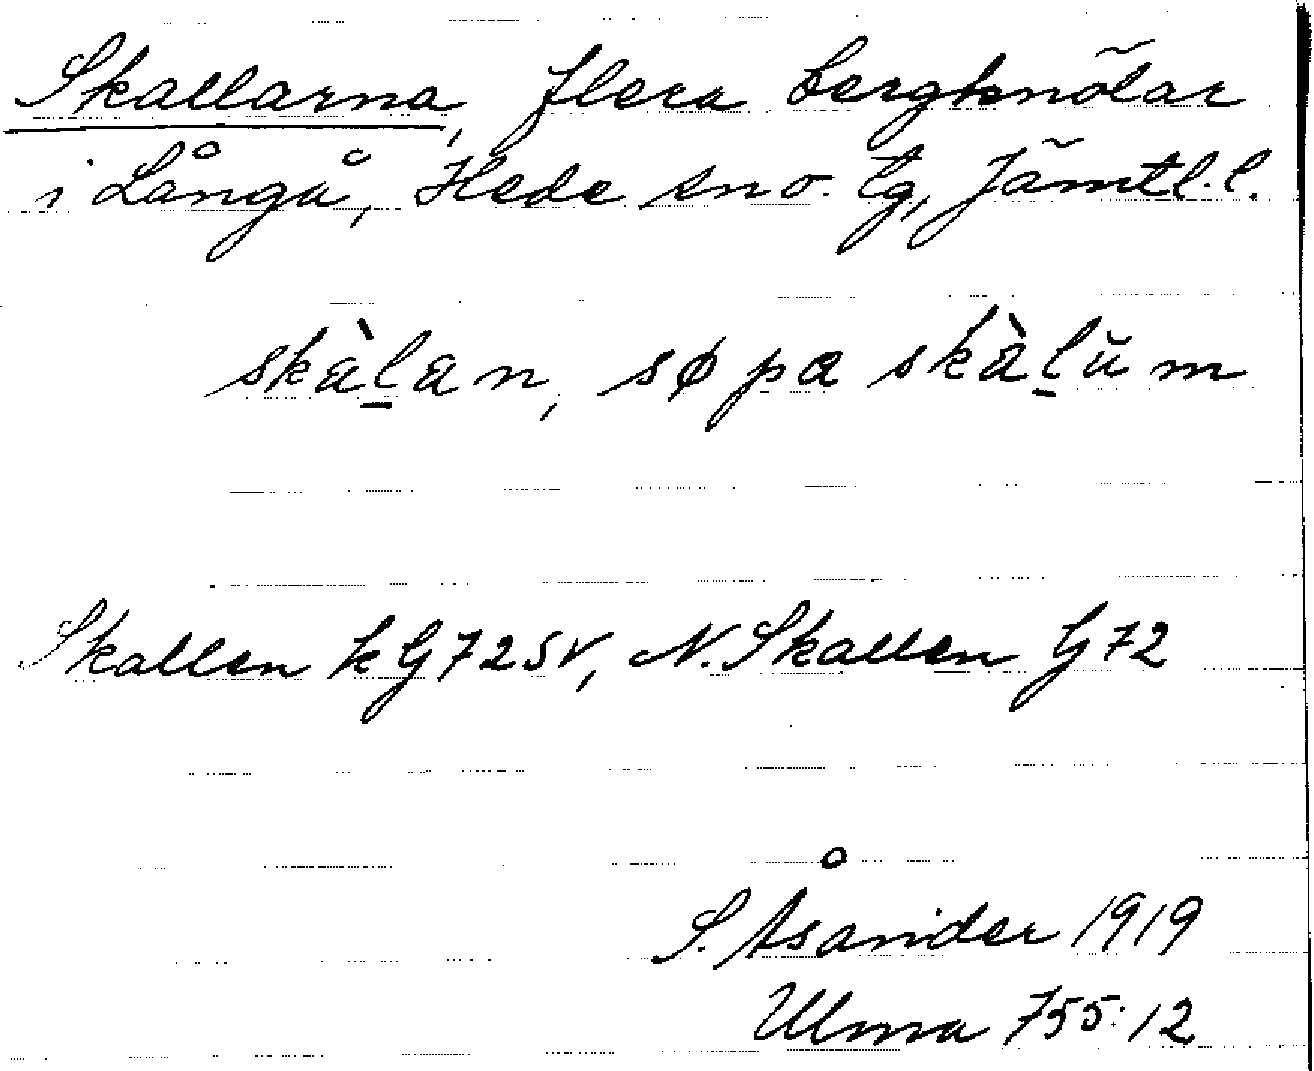 Skallarna, flera bergknölar
i Långå, Hede sn o. tg, Jämtl. l.
skàl̠an, sø pa skàl̠ŭm
Skallen k G72SV, N. Skallen G72
S. Åsander 1919
Ulma 755:12